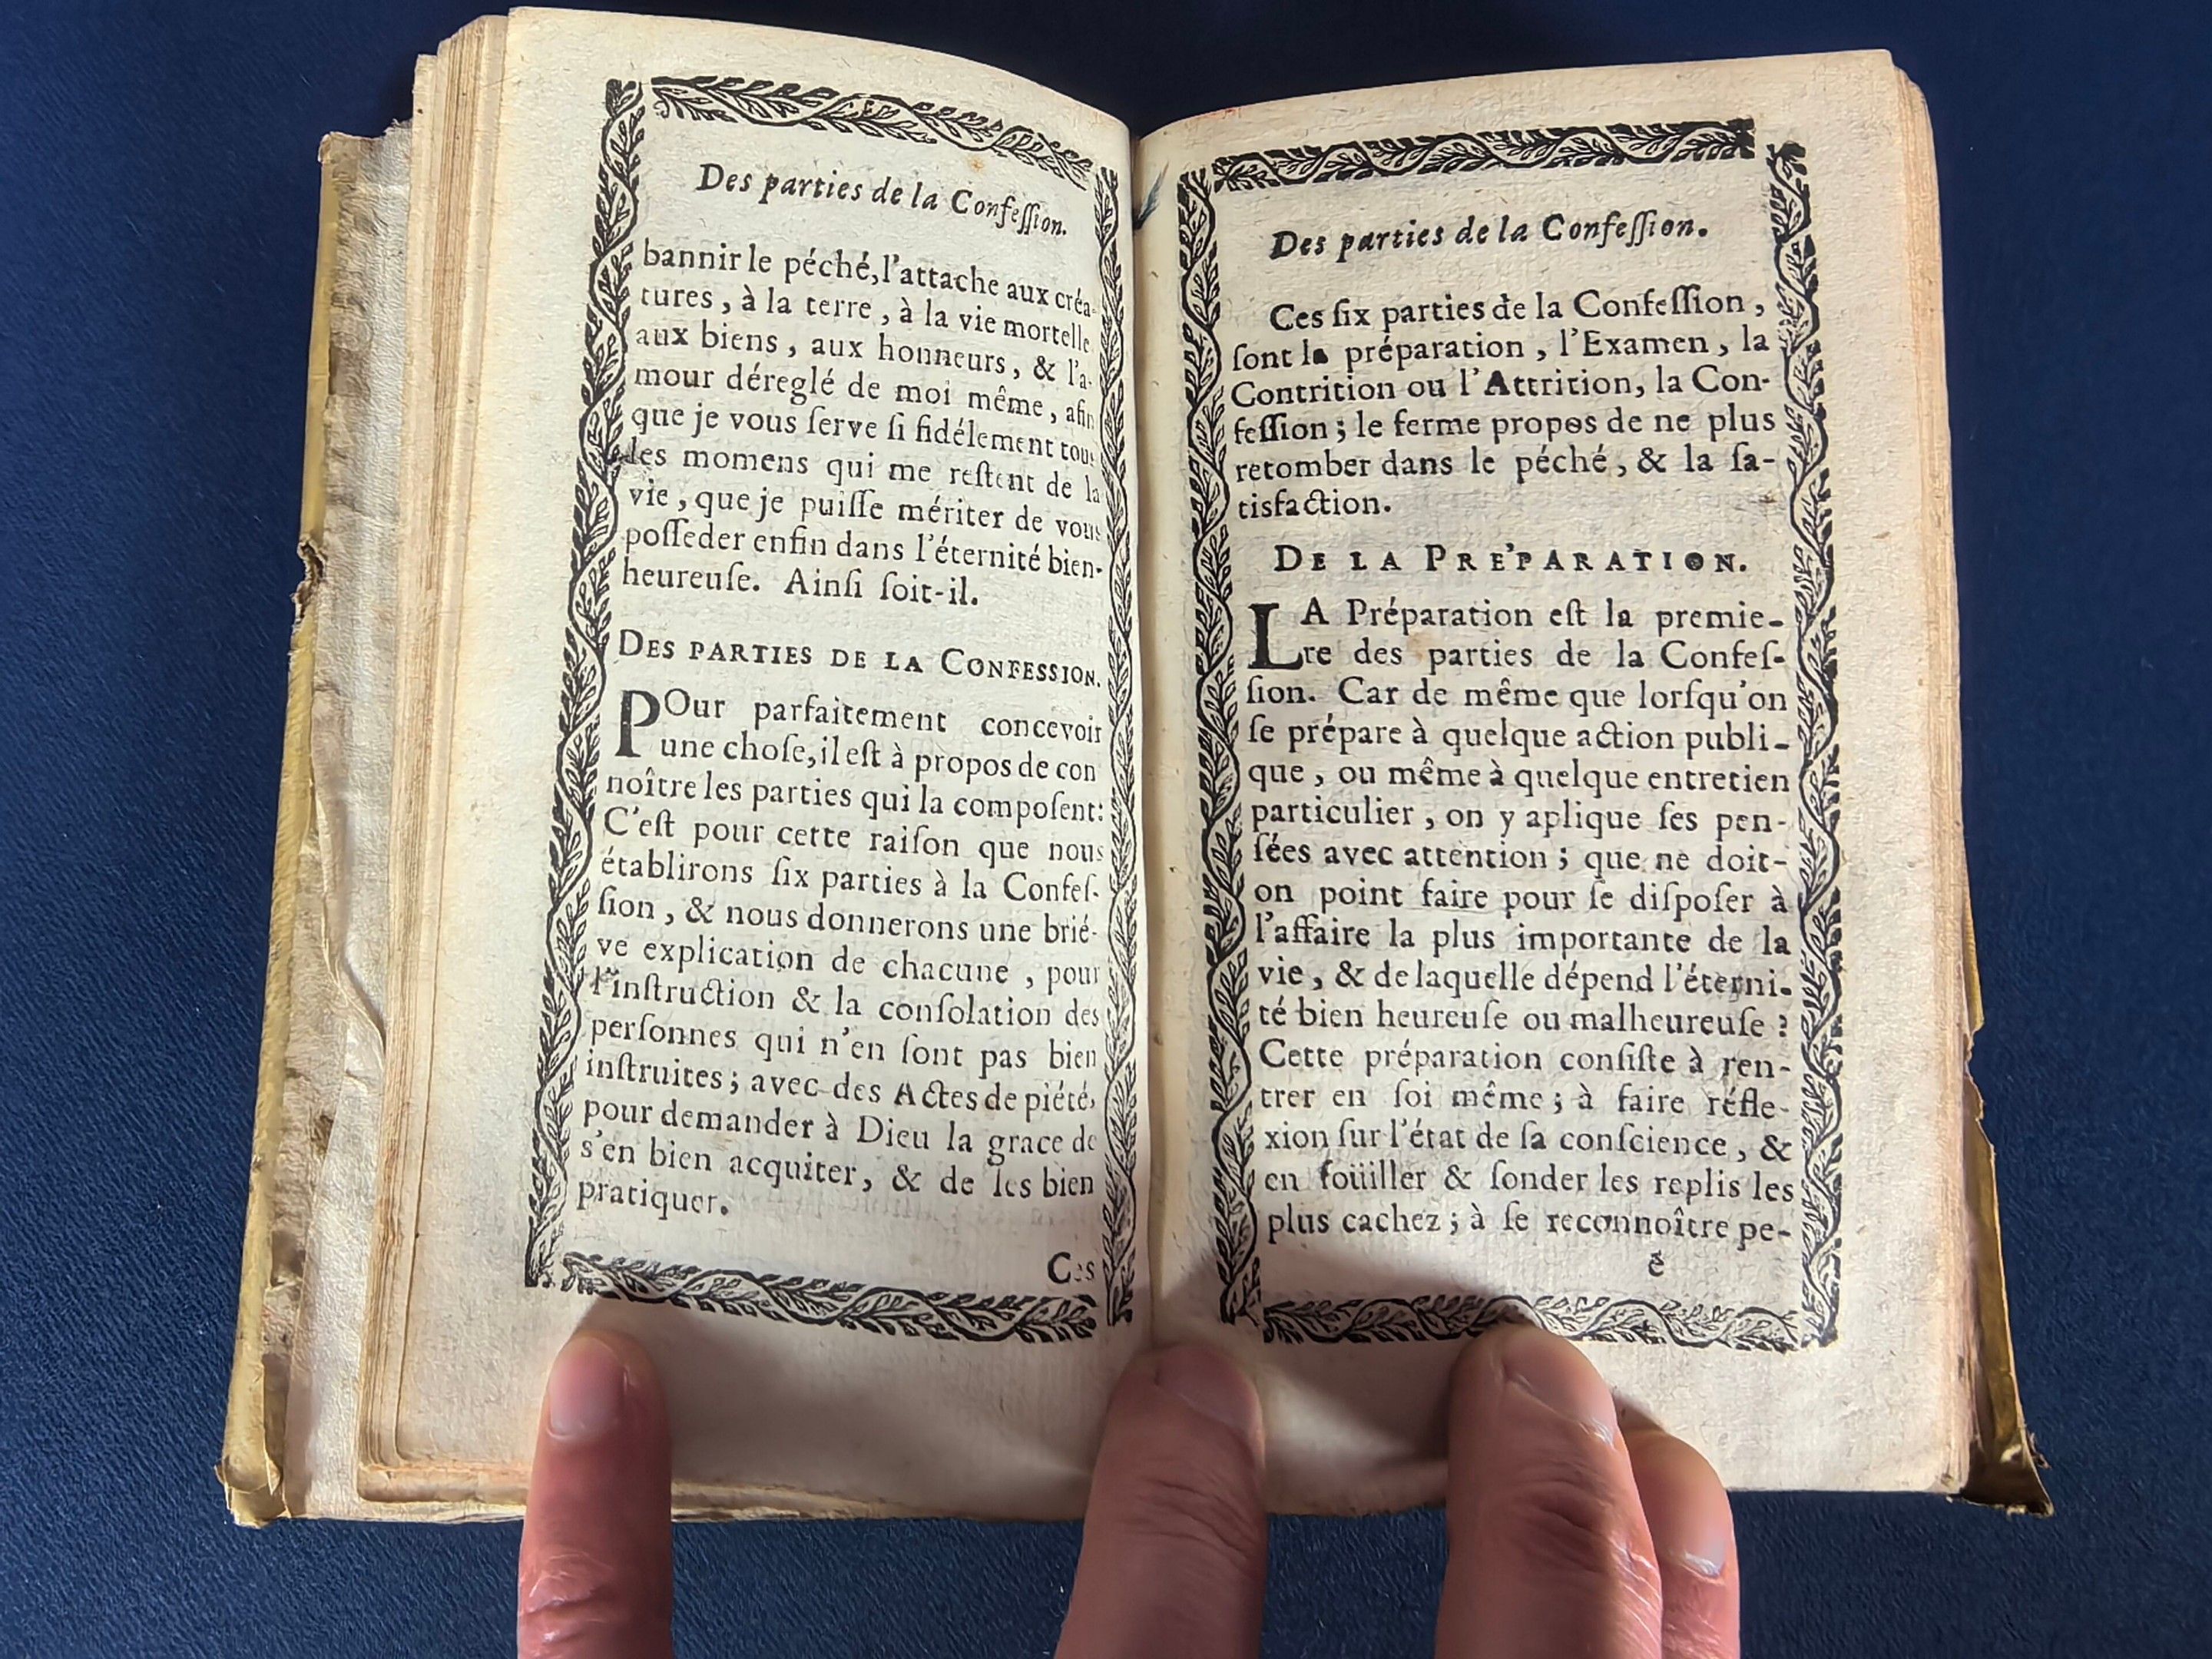 Des parties de la Confeſſion.
bannir le péché, l'attache aux créa-
tures, à la terre, à la vie mortelle
aux biens, aux honneurs, & l'a-
mour déreglé de moi même, afin
que je vous ſerve ſi fidélement tous
les momens qui me reſtent de la
vie, que je puiſſe mériter de vous
poſſeder enfin dans l'éternité bien-
heureuſe. Ainſi ſoit-il.
DES PARTIES DE LA CONFESSION.
POur parfaitement concevoir
une choſe, il eſt à propos de con
noître les parties qui la compoſent:
C'eſt pour cette raiſon que nous
établirons ſix parties à la Confeſ-
ſion, & nous donnerons une brié-
ve explication de chacune, pour
l'inſtruction & la conſolation des
perſonnes qui n'en ſont pas bien
inſtruites; avec des Actes de piété,
pour demander à Dieu la grace de
s'en bien acquiter, & de les bien
pratiquer.
Ces
Des parties de la Confeſſion.
Ces ſix parties de la Confeſſion,
ſont la préparation, l'Examen, la
Contrition ou l'Attrition, la Con-
feſſion; le ferme propos de ne plus
retomber dans le péché, & la ſa-
tisfaction.
DE LA PRE'PARATION.
LA Préparation eſt la premie-
re des parties de la Confeſ-
ſion. Car de même que lorſqu'on
ſe prépare à quelque action publi-
que, ou même à quelque entretien
particulier, on y aplique ſes pen-
ſées avec attention; que ne doit-
on point faire pour ſe diſpoſer à
l'affaire la plus importante de la
vie, & de laquelle dépend l'éterni-
té bien heureuſe ou malheureuſe?
Cette préparation conſiſte à ren-
trer en ſoi même; à faire réfle-
xion ſur l'état de ſa conſcience, &
en foüiller & ſonder les replis les
plus cachez; à ſe reconnoître pe-
é